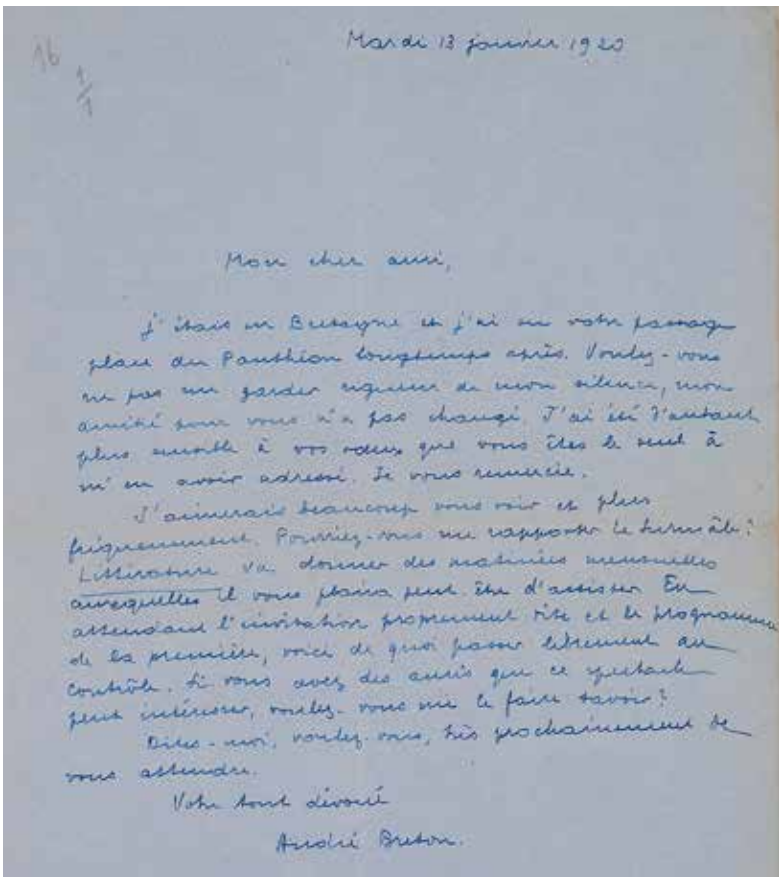 Mardi 13 janvier 1920
16
1/1
Mon cher ami,
j'étais en Bretagne et j'ai su votre passage
place du Panthéon longtemps après. Voulez-vous
ne pas me garder rigueur de mon silence, mon
amitié pour vous n'a pas changé. J'ai été d'autant
plus sensible à vos vœux que vous êtes le seul à
m'en avoir adressé. Je vous remercie.
J'aimerais beaucoup vous voir et plus
fréquemment. Pourriez-vous me rapporter le
Littérature va donner des matinées mensuelles
auxquelles il vous plaira peut être d'assister. En
attendant l'invitation proprement dite et le programme
de la première, voici de quoi passer librement au
contrôle. Si vous avez des amis que ce spectacle
peut intéresser, voulez-vous me le faire savoir?
Dites-moi, voulez-vous, très prochainement de
vous attendre.
Votre tout dévoué
André Breton.